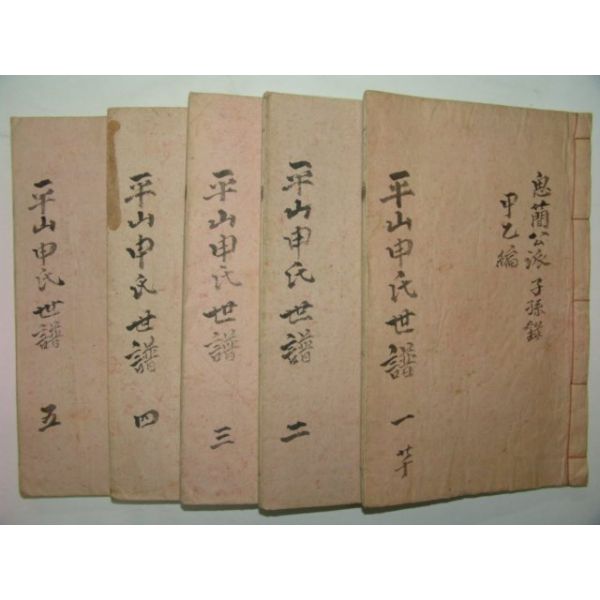 思簡公派子孫錄
甲乙編
平山申氏世譜 一
平山申氏世譜 二
平山申氏世譜 三
平山申氏世譜 四
平山申氏世譜 五